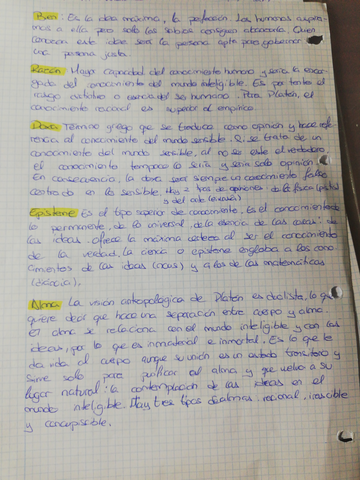 Bien: Es la idea máxima, la perfección. Los humanos aspira-
mos a ella pero solo los sabios consiguen alcanzarla. Quien
conozca esta idea será la persona apta para gobernar
una persona justa
Razón: Mayor capacidad del conocimiento humano y seria la encar-
gada del conocimiento del mundo inteligible. Es por tanto el
rasgo distintivo o esencial del ser humano. Para Platón, el
conocimiento racional es superior al empírico.
Doxa: Término griego que se traduce como opinión y hace refe-
rencia al conocimiento del mundo sensible. Si se trata de un
conocimiento del mundo sensible, al no ser este el verdadero
el conocimiento tampoco lo sería y sería solo opinión.
En consecuencia, la doxa será siempre un conocimiento falso
centrado en lo sensible. Hay 2 tipos de opiniones: de la física (pistis)
y del arte (eikasia)
Episteme: Es el tipo superior de conocimiento. Es el conocimiento de
lo permanente, de lo universal, de la esencia de las cosas: de
las ideas. Ofrece la máxima certeza al ser el conocimiento
de la verdad. La ciencia o episteme engloba a los cono
cimientos de las ideas (nous) y a los de las matemáticas
(dianoia).
Alma: La visión antropológica de Platón es dualista, lo que
quiere decir que hace una separación entre cuerpo y alma.
El alma se relaciona con el mundo inteligible y con las
ideas, por lo que es inmaterial e inmortal. Es lo que le
da vida al cuerpo aunque su unión es un estado transitorio y
sirve solo para purificar al alma y que vuelva a su
lugar natural: la contemplación de las ideas en el
mundo inteligible. Hay tres tipos de almas: racional, irascible
y concupiscible.